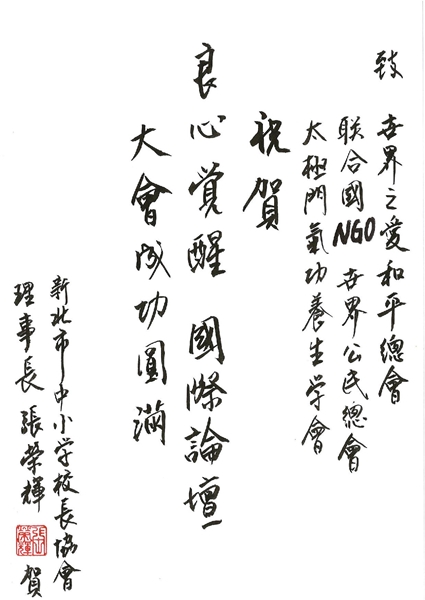 致
世界之愛和平總會
聯合國NGO世界公民總會
太極門氣功養生学會
祝賀
良心覺醒 國際論壇
大會成功圓滿
新北市中小学校長協會
理事長 張榮輝 賀